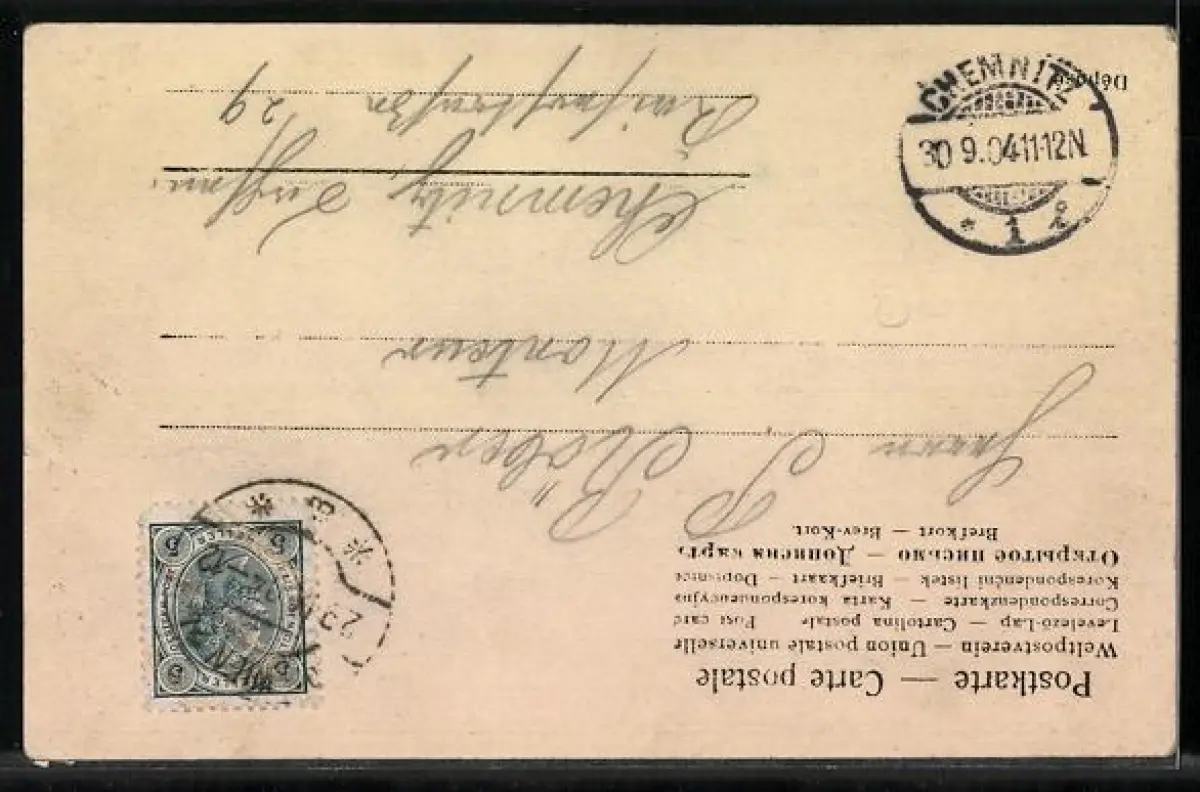 Postkarte — Carte postale
Weltpostverein — Union postale universelle
Levelező-Lap — Cartolina postale Post card
Correspondenzkarte — Karta korespondencyjna
Korespondenční lístek — Briefkaart — Dopisnice
Открытое письмо — Дописна карт.
Brefkort — Brev-Kort.
5 5
5 5
WIEN
Herrn P. Röber
Monteur
Chemnitz,
29
Déposé
CHEMNITZ
30.9.04 11-12N.
* 1 *